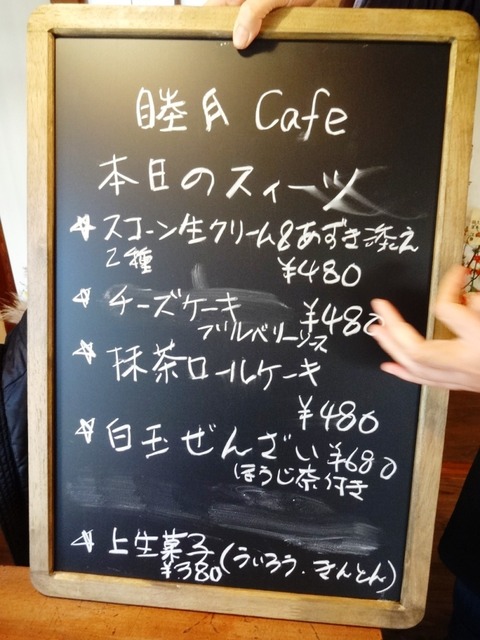 睦月 Cafe
本日のスイーツ
☆ スコーン生クリーム&あずき添え
2種 ¥480
☆ チーズケーキ ¥480
ブルベリーソース
☆ 抹茶ロールケーキ
¥480
☆ 白玉ぜんざい ¥680
ほうじ茶付き
☆ 上生菓子(ういろう・きんとん)
¥380